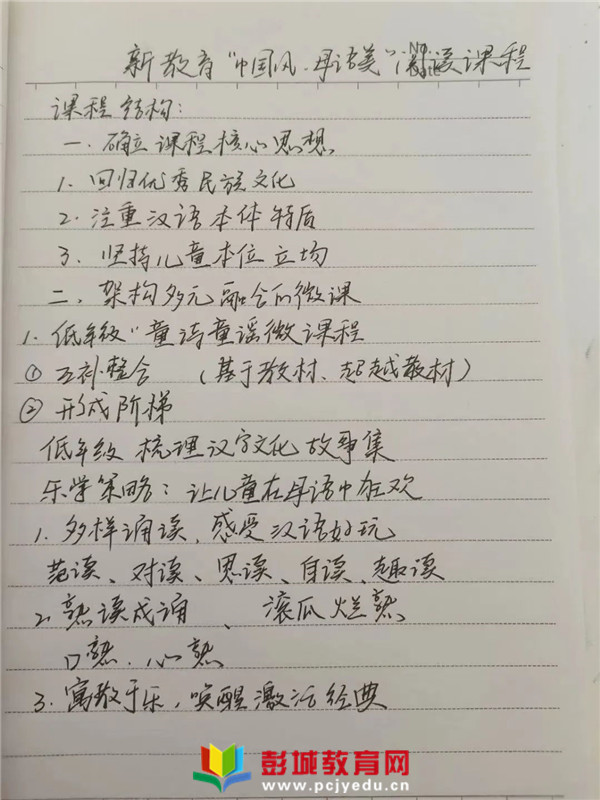 新教育“中国风·母语美”阅读课程
No.
Date
课程结构：
一. 确立课程核心思想
1. 回归优秀民族文化
2. 注重汉语本体特质
3. 坚持儿童本位立场
二、架构多元融合的微课
1. 低年级“童诗童谣微课程
① 互补整合 （基于教材、超越教材）
② 形成阶梯
低年级 梳理汉字文化故事集
乐学策略：让儿童在母语中狂欢
1. 多样诵读、感受汉语好玩
范读、对读、思读、自读、趣读
2. 熟读成诵、滚瓜烂熟
口熟. 心熟
3. 寓教于乐，唤醒激活经典
彭城教育网
www.pcjyedu.cn